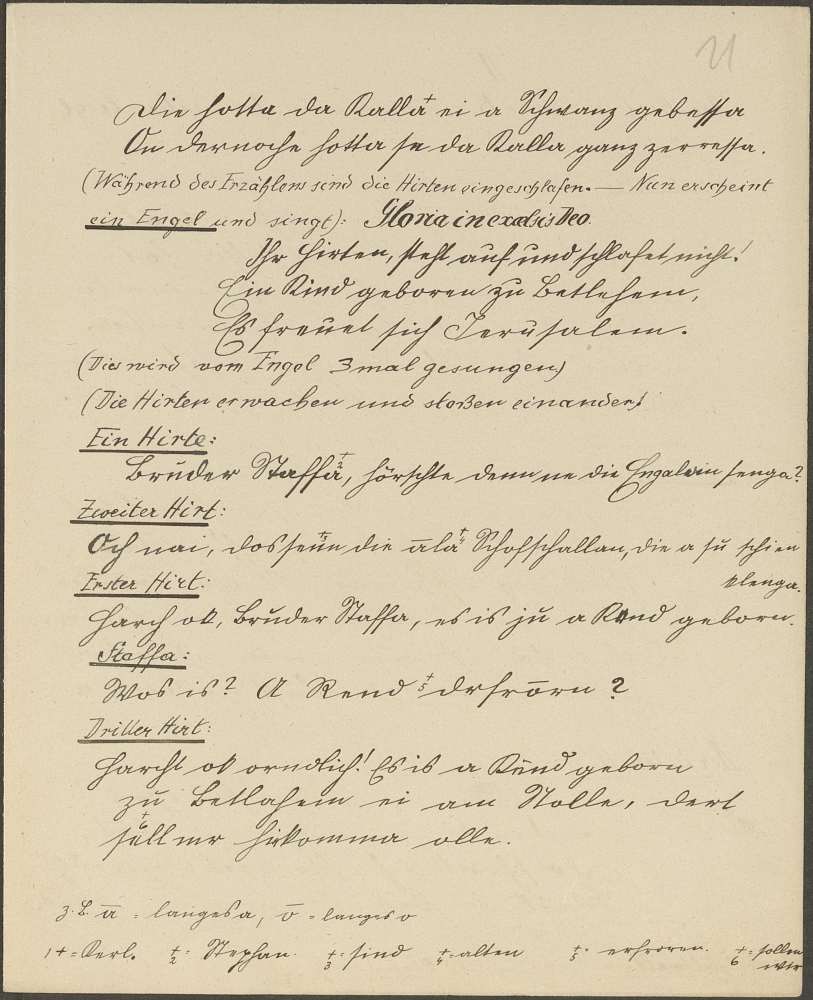 21
Die hotta da Kalla⁺ ei a Schwanz gebessa
On dernoche hotta se da Kalla ganz zerressa.
(Während des Erzählens sind die Hirten eingeschlafen. — Nun erscheint
ein Engel und singt): Gloria in exalsis Deo.
Ihr Hirten, steht auf und schlafet nicht!
Ein Kind geboren zu Betlehem,
Es freuet sich Jerusalem.
(Dies wird vom Engel 3 mal gesungen)
(Die Hirten erwachen und stoßen einander)
Ein Hirte:
Bruder Staffa⁺₂, hörschte denn ne die Engalan senga?
Zweiter Hirt:
Och nai, dos senn⁺₃ die āla⁺₄ Schofschallan, die a su schien
klenga.
Erster Hirt:
Harch ok, Bruder Staffa, es is ju a Kend geborn.
Staffa:
Wos is? A Rend ⁺₅ drfrōrn?
Dritter Hirt:
Harcht ok orndlich! Es is a Kend geborn
zu Betlahem ei am Stolle, dert
sell mr⁺₆ hikomma olle.
z. B. ā = langes a, ō = langes o
1+ = Kerl. +2 = Stephan. +3 = sind +4 = alten +5 = erfroren. +6 = sollen
wir